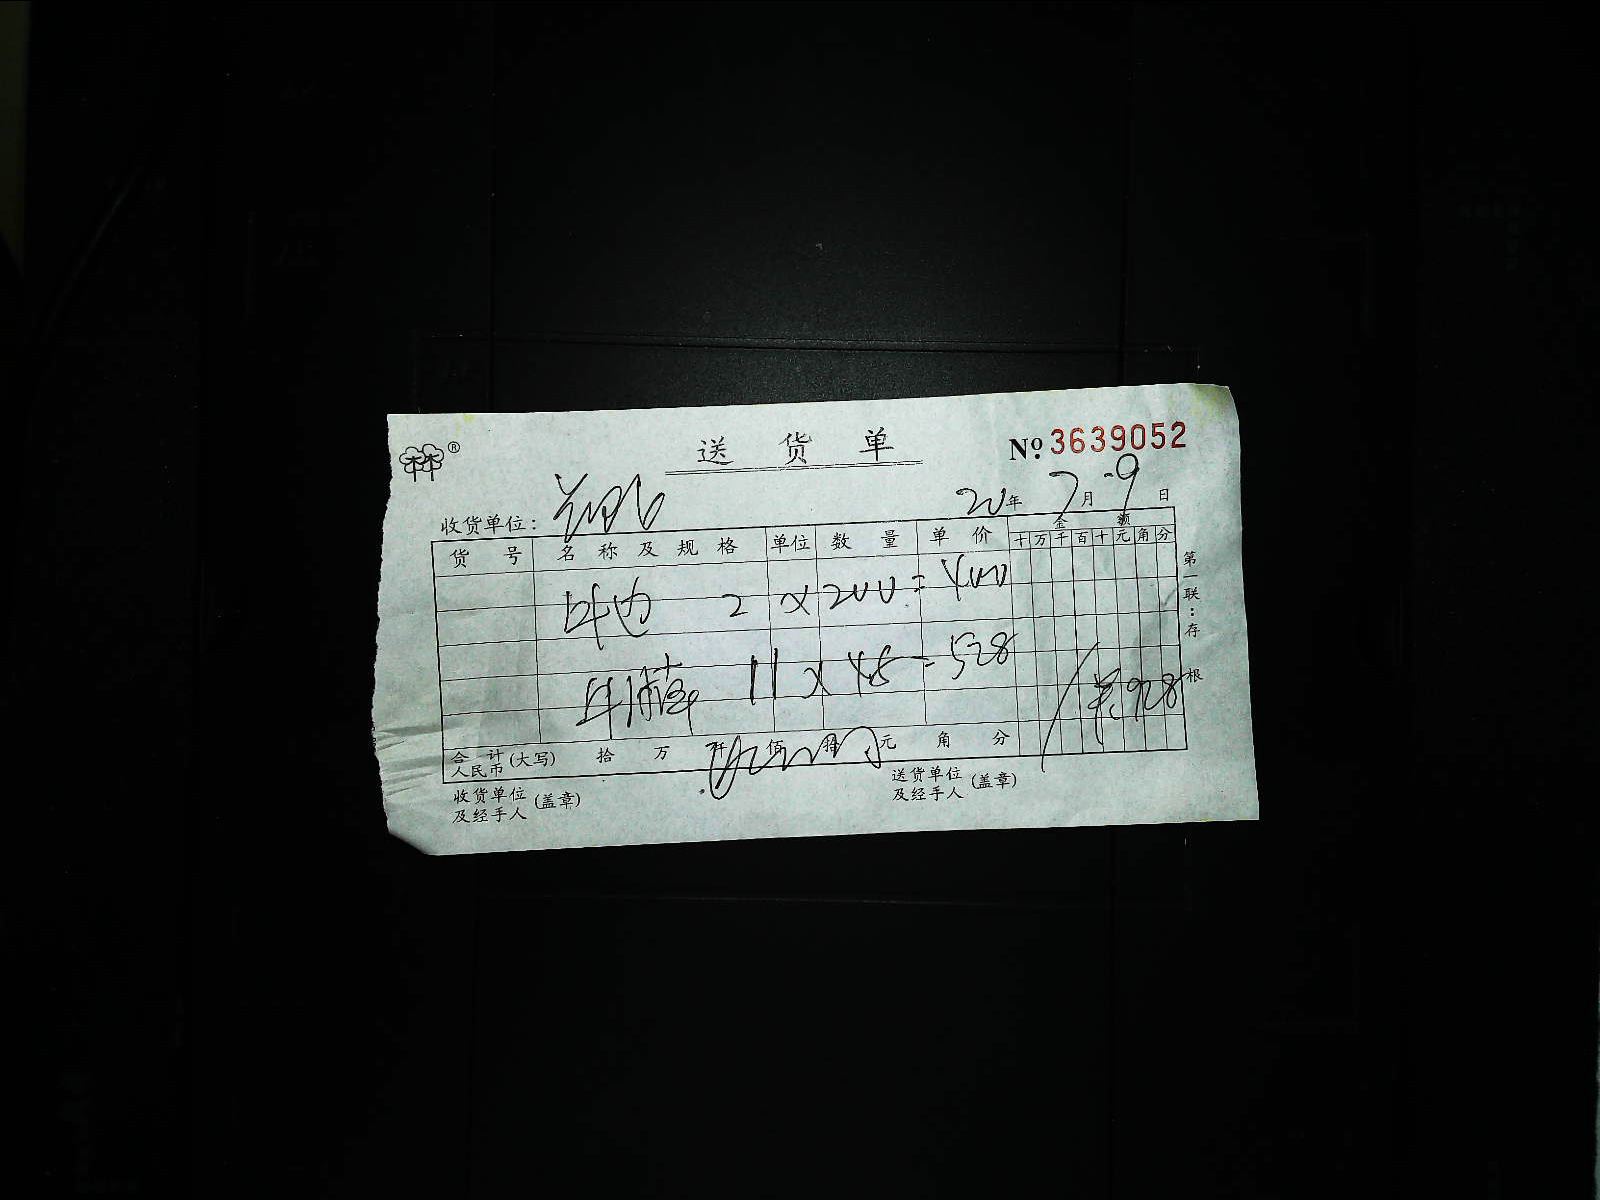 送货单 № 3639052
收货单位:
20年 7月 9日
货号 名称及规格 单位 数量 单价 金额
十万千百十元角分
2 × 200 = 400
11 × 48 = 528
928
合计人民币(大写) 拾 万 仟 佰 拾 元 角 分
收货单位及经手人(盖章) 送货单位及经手人(盖章)
第一联:存根